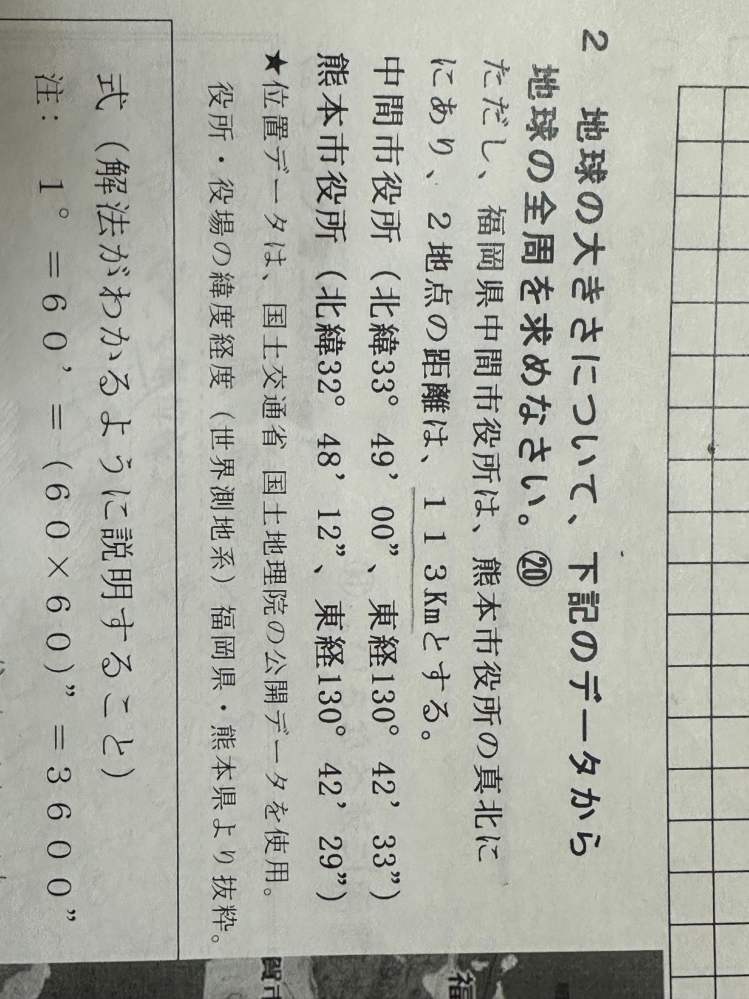 2　地球の大きさについて、下記のデータから
地球の全周を求めなさい。⑳
ただし、福岡県中間市役所は、熊本市役所の真北に
にあり、2地点の距離は、113Kmとする。
中間市役所（北緯33° 49’ 00”、東経130° 42’ 33”）
熊本市役所（北緯32° 48’ 12”、東経130° 42’ 29”）
★位置データは、国土交通省 国土地理院の公開データを使用。
役所・役場の緯度経度（世界測地系）福岡県・熊本県より抜粋。
式（解法がわかるように説明すること）
注：　1°＝60’＝（60×60）”＝3600”
福
賀市